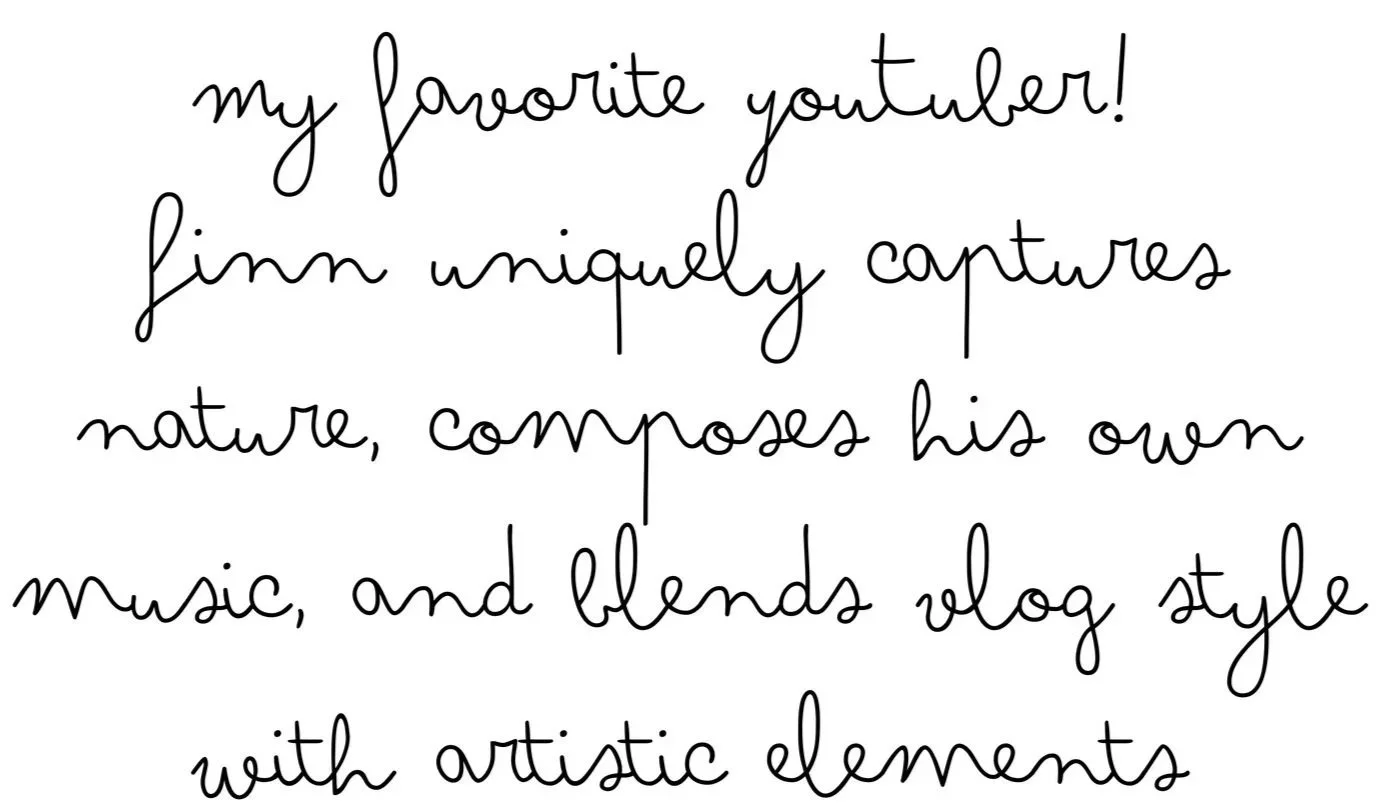 my favorite youtuber!
finn uniquely captures
nature, composes his own
music, and blends vlog style
with artistic elements